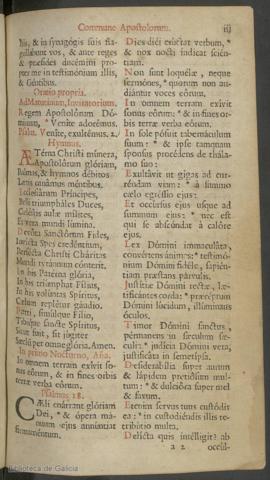 Commune Apostolorum.
iij
llis, & in synagógis suis fla-
gellábunt vos, & ante reges
& præsides ducémini pro-
pter me in testimónium illis,
& Géntibus.
Orátio propria.
Ad Matutinum, Invitatorium.
Regem Apostolórum Dó-
minum, * Veníte adorémus.
Psalm. Veníte, exultémus. 2.
Hymnus.
ÆTérna Christi múnera,
Apostolórum glóriam,
& hymnos débitos
Lætis canámus méntibus.
Ecclesiárum Príncipes,
Belli triumpháles Duces,
Cœléstis aulæ mílites,
Et vera mundi lúmina.
Devóta Sanctórum Fides,
Invícta Spes credéntium,
Perfécta Christi Cháritas
Mundi tyránnum cónterit.
In his Patérna glória,
In his triúmphat Fílius,
In his volúntas Spíritus,
Cœlum replétur gáudio.
Patri, simúlque Fílio,
Tibíque sancte Spíritus,
Sicut fuit, sit júgiter
Sæclum per omne glória. Amen.
In primo Nocturno, Aña.
In omnem terram exívit so-
nus eórum, & in fines orbis
terræ verba eórum.
Psalmus 18.
CÆli enárrant glóriam
Dei, * & ópera má-
nuum ejus annúntiat
firmaméntum.
Dies diéi erúctat verbum, *
& nox nocti índicat scién-
tiam.
Non sunt loquélæ, neque
sermónes, * quorum non au-
diántur voces eórum.
In omnem terram exívit
sonus eórum: * & in fines or-
bis terræ verba eórum.
In sole pósuit tabernáculum
suum: * & ipse tamquam
sponsus procédens de thála-
mo suo:
Exultávit ut gigas ad cur-
réndam viam: * à summo
cœlo egréssio ejus:
Et occúrsus ejus usque ad
summum ejus: * nec est
qui se abscóndat à calóre
ejus.
Lex Dómini immaculáta,
convértens ánimas: * testimó-
nium Dómini fidéle, sapién-
tiam præstans párvulis.
Justítiæ Dómini rectæ, læ-
tificántes corda: * præcéptum
Dómini lúcidum, illúminans
óculos.
Timor Dómini sanctus,
pérmanens in sǽculum sǽ-
culi: * judícia Dómini vera,
justificáta in semetípsa.
Desiderabília super aurum
& lápidem pretiósum mul-
tum: * & dulcióra super mel
& favum.
Etenim servus tuus custódit
ea: * in custodiéndis illis re-
tribútio multa.
Delícta quis intélligit? ab
a 2
occúl-
Biblioteca de Galicia